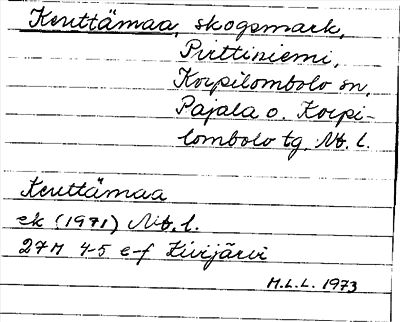 Kenttämaa, skogsmark,
Pirttiniemi,
Korpilombolo sn,
Pajala o. Korpi-
lombolo tg, Nb. l.
Kenttämaa
ek (1971) Nb. l.
27M 4-5 e-f Kivijärvi
M.L.L. 1973